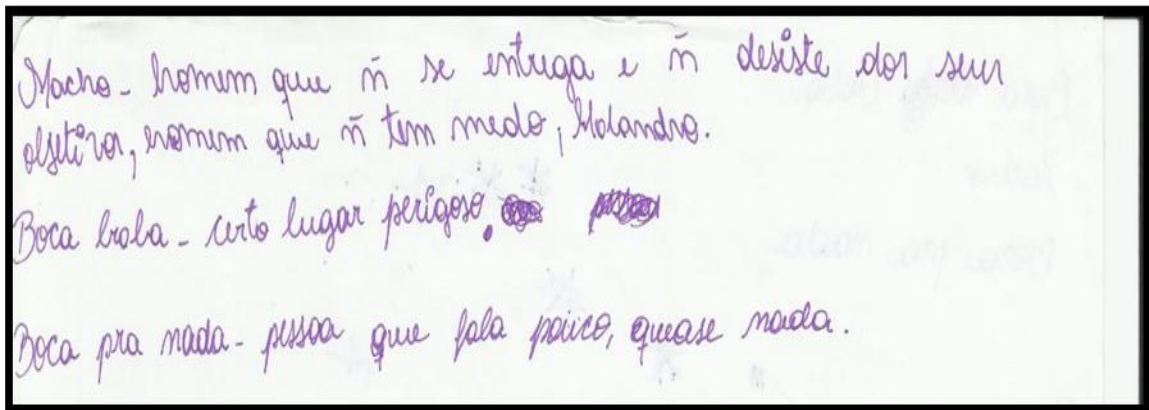 Macho - homem que ñ se entrega e ñ desiste dos seus
objetivos, homem que ñ tem medo, Malandro.
Boca braba - certo lugar perigoso.
Boca pra nada - pessoa que fala pouco, quase nada.